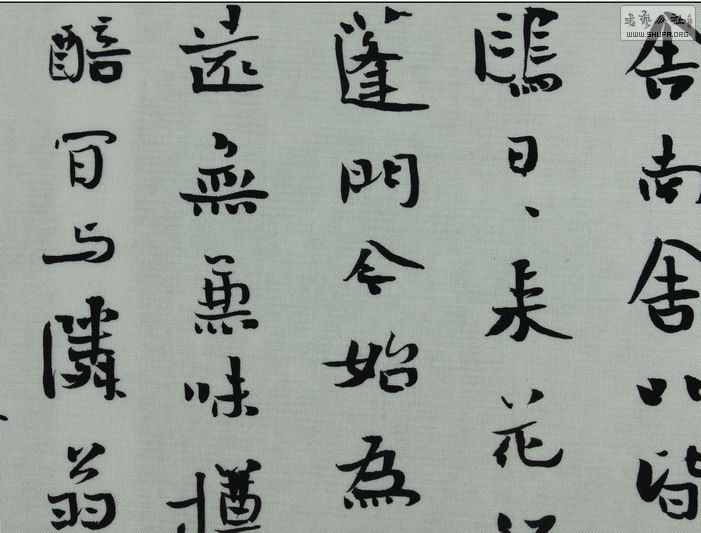 舍南舍北皆
鷗日、来花
蓬門今始為
遠無兼味樽
醅肯与隣翁
書藝公社
WWW.SHUFA.ORG